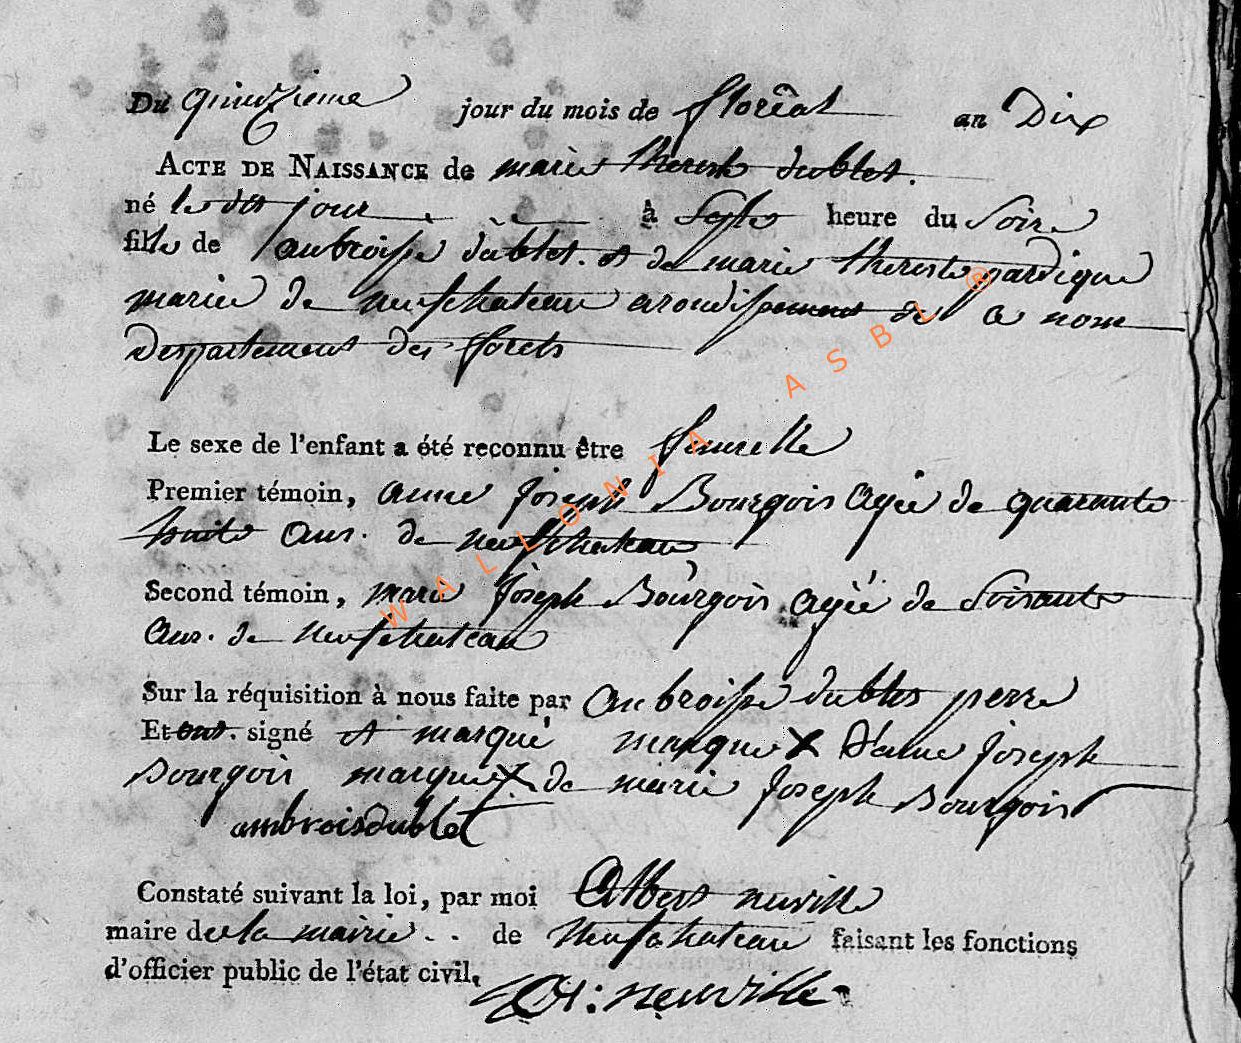 Du quinzieme jour du mois de florêal an Dix
ACTE DE NAISSANCE de marie therese dublet.
né le dit jour à Sept heure du Soire
fille de ambroisse dublet. et de marie therese pardique
marie de neufchateau arondissement de ce nom
Departement des forets
Le sexe de l'enfant a été reconnu être femelle
Premier témoin, anne Joseph Bourgois agée de quarante
huite ans. de neufchateau
Second témoin, marie Joseph Bourgois agée de Soixante
ans. de neufchateau
Sur la réquisition à nous faite par ambroisse dublet perre
Et ont signé et marqué marque X d'anne Joseph
Bourgois marque X de marie Joseph Bourgois
ambroisdublet
Constaté suivant la loi, par moi Albert neuville
maire de la mairie . . de Neufchateau faisant les fonctions
d'officier public de l'état civil.
A: neuville
WALLONIA ASBL ®